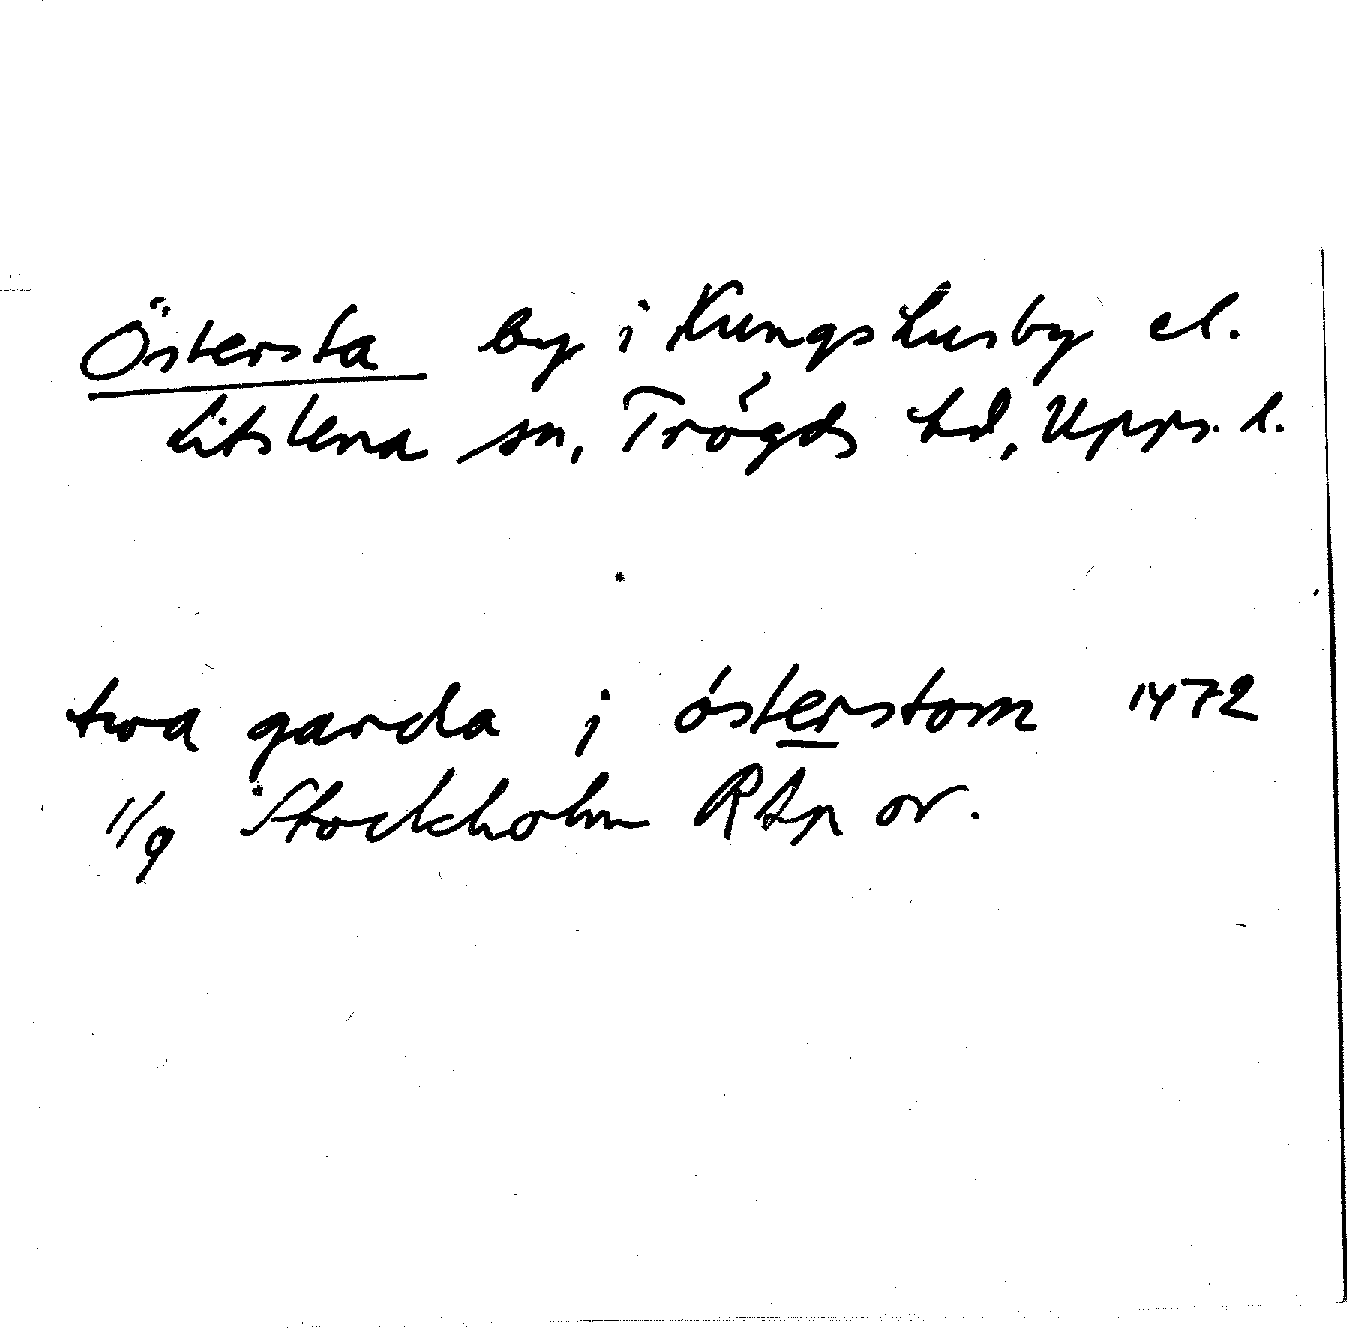 Östersta by i Kungshusby el.
Litslena sn, Trögds hd, Upps. l.
twa garda i österstom 1472
11/9 Stockholm RAp or.